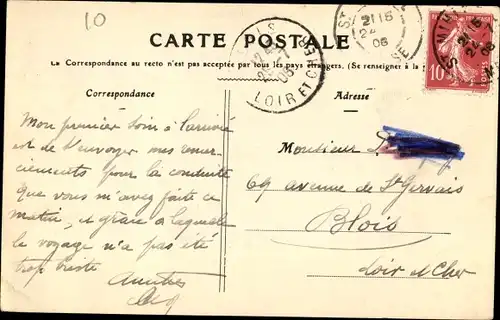 10
CARTE POSTALE
La Correspondance au recto n'est pas acceptée par tous les pays étrangers. (Se renseigner à la
Correspondance
Adresse
LOIR ET CHER
21 15
24
06
10
Mon premier soin à l'arrivée
est de t'envoyer mes remer-
ciements pour la conduite
que vous m'avez faite ce
matin, et grâce à laquelle
le voyage n'a pas été
trop triste
Amitiés
Monsieur
69 avenue de St Gervais
Blois
Loir et Cher